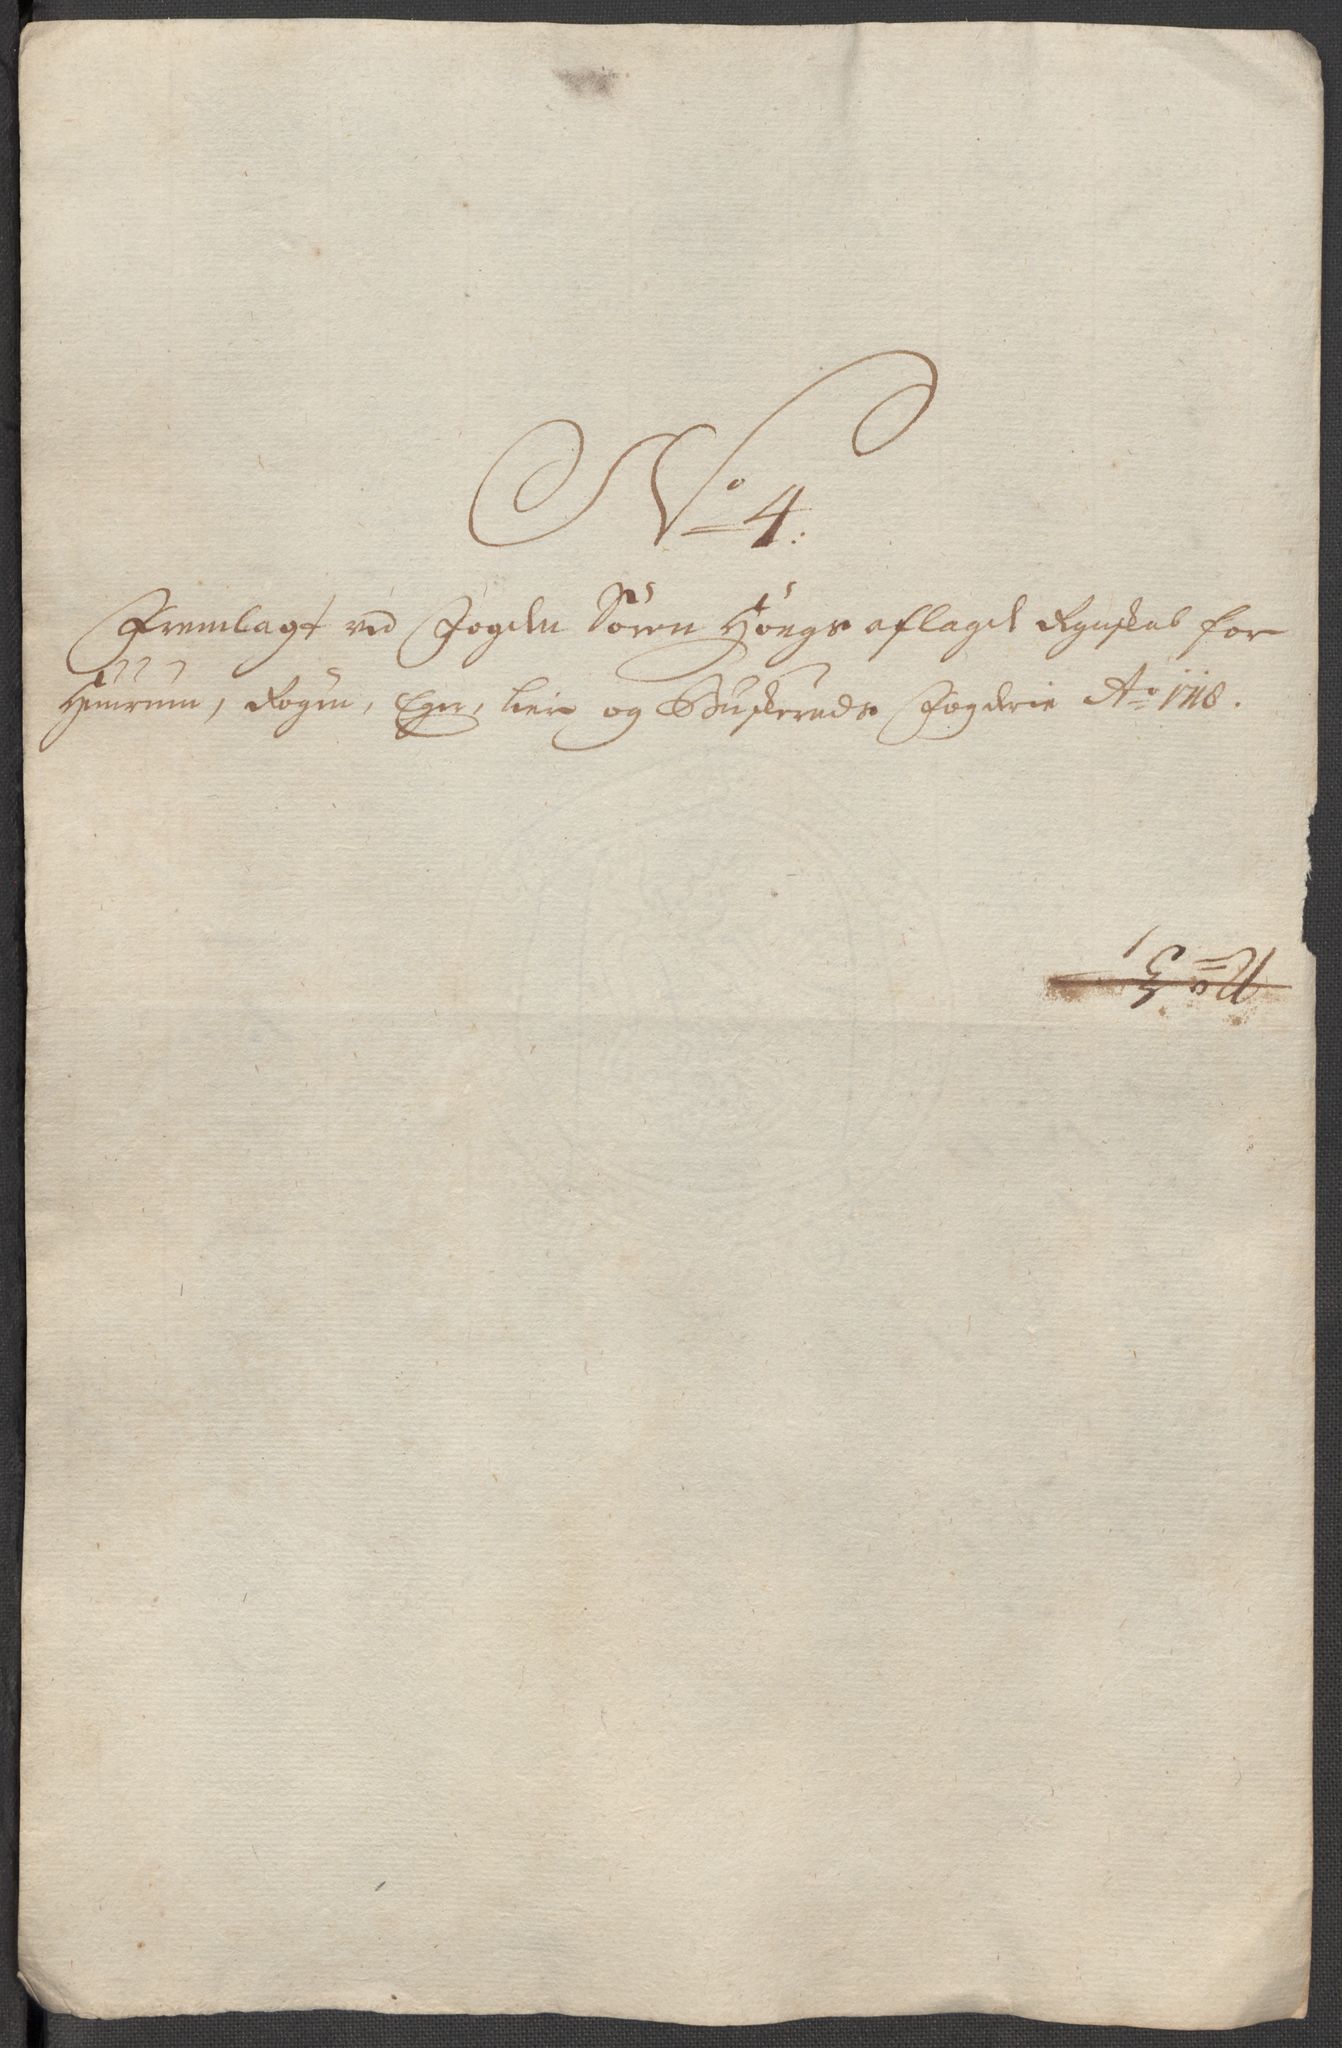 No 4.
Fremlagt ved Fogden Sören Höegs aflagde Regnskab for
Hurum, Rögen, Eger, Lier og Buskeruds Fogderie Ao 1718.
No 3